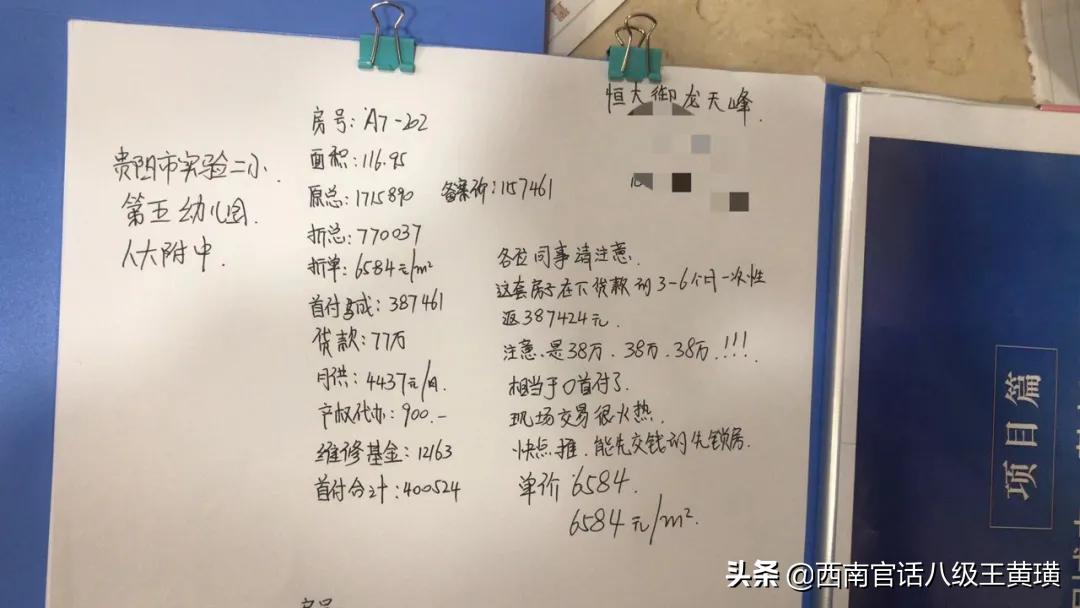 恒大御龙天峰.
贵阳市实验二小.
第五幼儿园.
人大附中.
房号: A7-202
面积: 116.95
原总: 1715890 备案价: 1157461
折总: 770037
折单: 6584元/m²
首付成: 387461
贷款: 77万
月供: 4437元/月.
产权代办: 900.-
维修基金: 12163
首付合计: 400524
各位同事请注意.
这套房子在下贷款的3-6个月一次性
返387424元.
注意.是38万.38万.38万.!!!
相当于0首付了.
现场交易很火热.
快点推.能先交钱的先锁房.
单价6584.
6584元/m².
项目篇
头条 @西南官话八级王黄璜